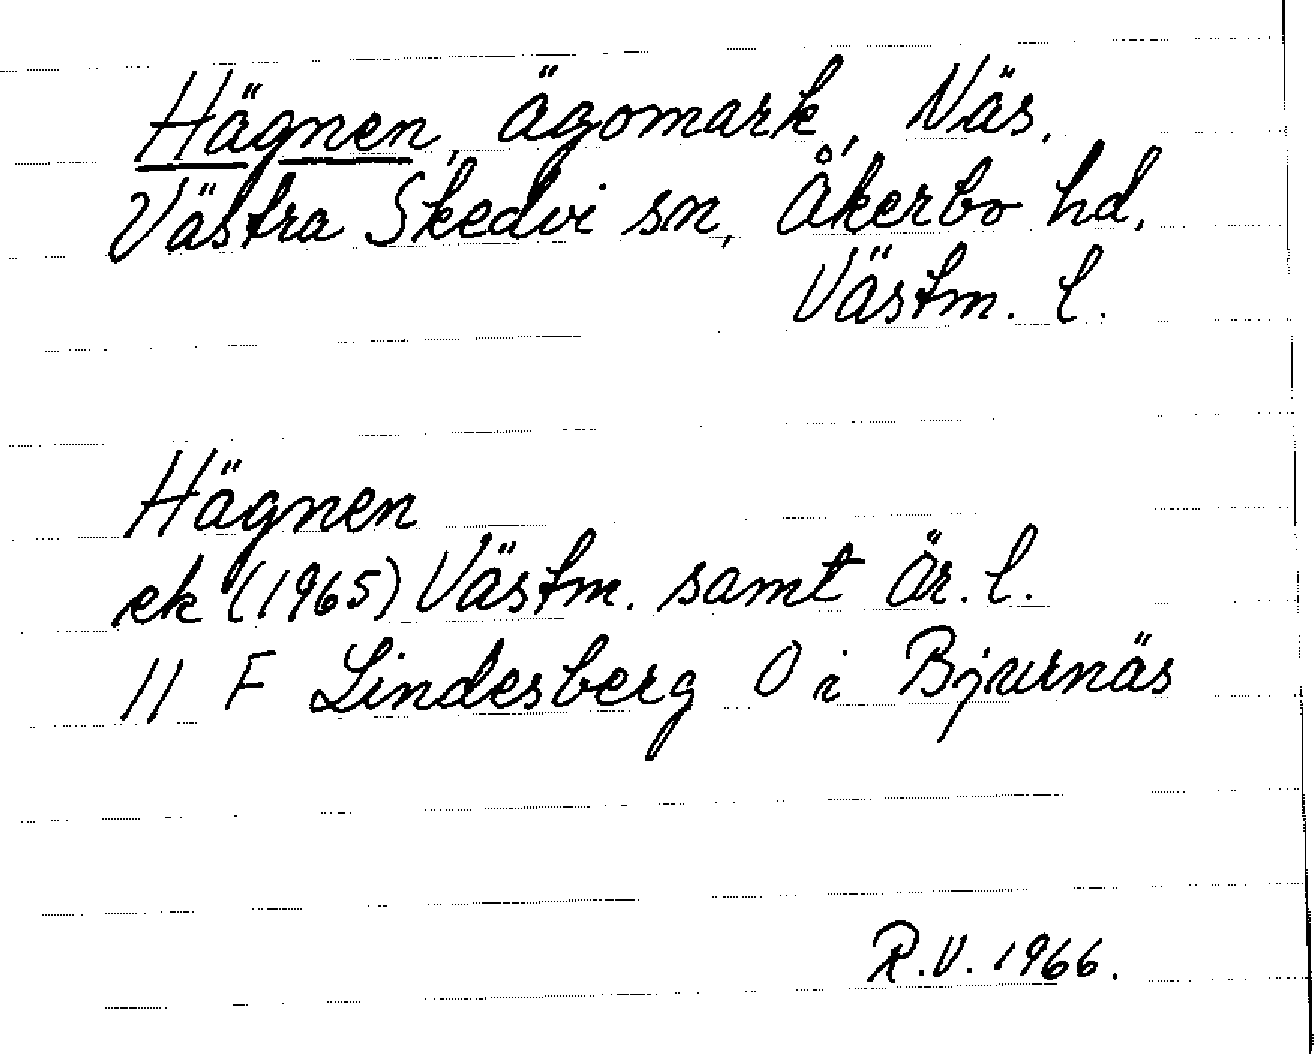 Hägnen, ägomark, Näs.
Västra Skedvi sn, Åkerbo hd,
Västm. l.
Hägnen
ek (1965) Västm. samt Är. l.
11 F Lindesberg 0 i Bjurnäs
R.V. 1966.